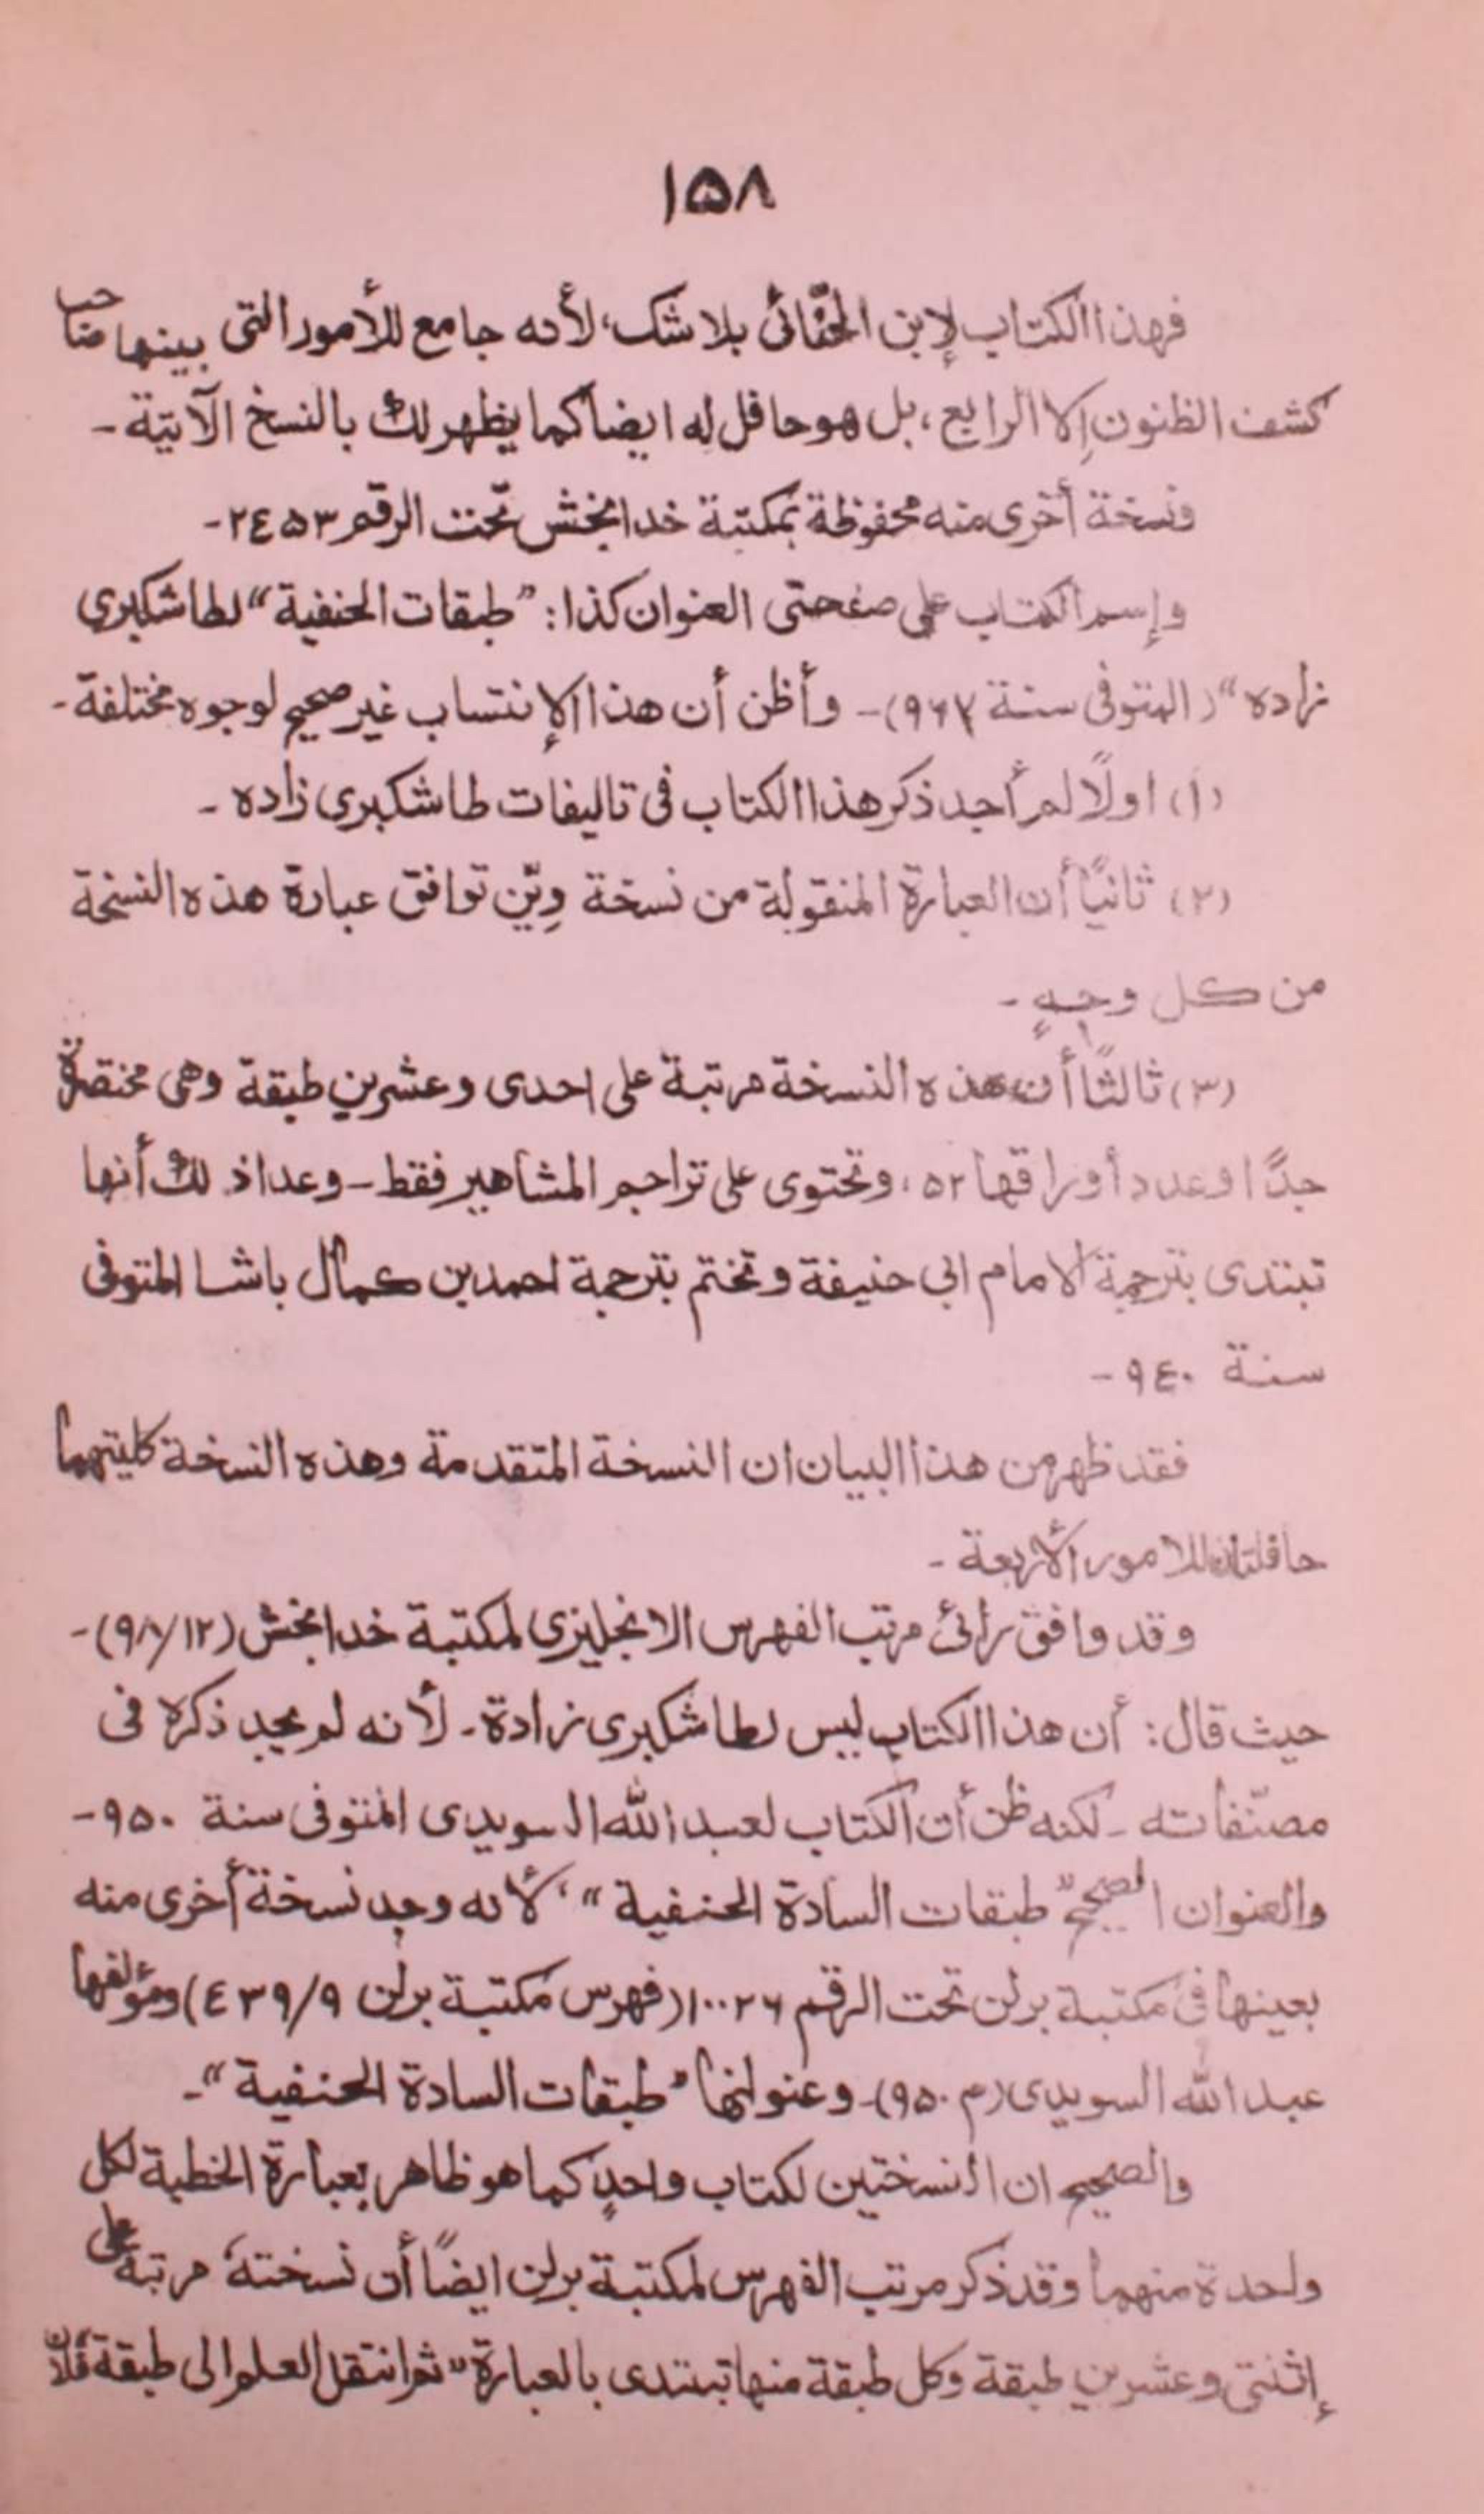 ١٥٨
فهذا الكتاب لإبن الحنّائى بلاشك، لأنه جامع للأمور التى بينها صاحب
كشف الظنون إلا الرابع، بل هو حافل له ايضا كما يظهر لك بالنسخ الآتية ـ
ونسخة أخرى منه محفوظة بمكتبة خدا بخش تحت الرقم ٢٤٥٣ ـ
وإسم الكتاب على صفحتى العنوان كذا: "طبقات الحنفية" لطاشكبرى
زاده" (المتوفى سنة ٩٦٧) ـ وأظن أن هذا الإنتساب غير صحيح لوجوه مختلفة ـ
(١) اولاً لم أجد ذكر هذا الكتاب فى تاليفات طاشكبرى زاده ـ
(٢) ثانيًا أن العبارة المنقولة من نسخة ويّن توافق عبارة هذه النسخة
من كل وجهٍ ـ
(٣) ثالثًا أن هذه النسخة مرتبة على احدى وعشرين طبقة وهى مختصرة
جدًا وعدد أوراقها ٥٢، وتحتوى على تراجم المشاهير فقط ـ وعدا ذلك أنها
تبتدى بترجمة الامام ابي حنيفة وتختم بترجمة احمد بن كمال باشا المتوفى
سنة ٩٤٠ ـ
فقد ظهر من هذا البيان ان النسخة المتقدمة وهذه النسخة كليتهما
حافلتان للامور الأربعة ـ
وقد وافق رائى مرتب الفهرس الانجليزى لمكتبة خدا بخش (٩٨/١٢) ـ
حيث قال: أن هذا الكتاب ليس لطاشكبرى زادة ـ لأنه لم يجد ذكره فى
مصنّفاته ـ لكنه ظن أن الكتاب لعبد الله السويدى المتوفى سنة ٩٥٠ ـ
والعنوان الصحيح "طبقات السادة الحنفية"، لأنه وجد نسخة أخرى منه
بعينها فى مكتبة برلن تحت الرقم ١٠٠٢٦ (فهرس مكتبة برلن ٤٣٩/٩) ومؤلفها
عبد الله السويدى (م ٩٥٠) ـ وعنوانها "طبقات السادة الحنفية" ـ
والصحيح ان النسختين لكتاب واحدٍ كما هو ظاهر بعبارة الخطبة لكل
واحدة منهما وقد ذكر مرتب الفهرس لمكتبة برلن ايضًا أن نسخته، مرتبة على
إثنتى وعشرين طبقة وكل طبقة منها تبتدى بالعبارة "ثم انتقل العلم الى طبقة فلان